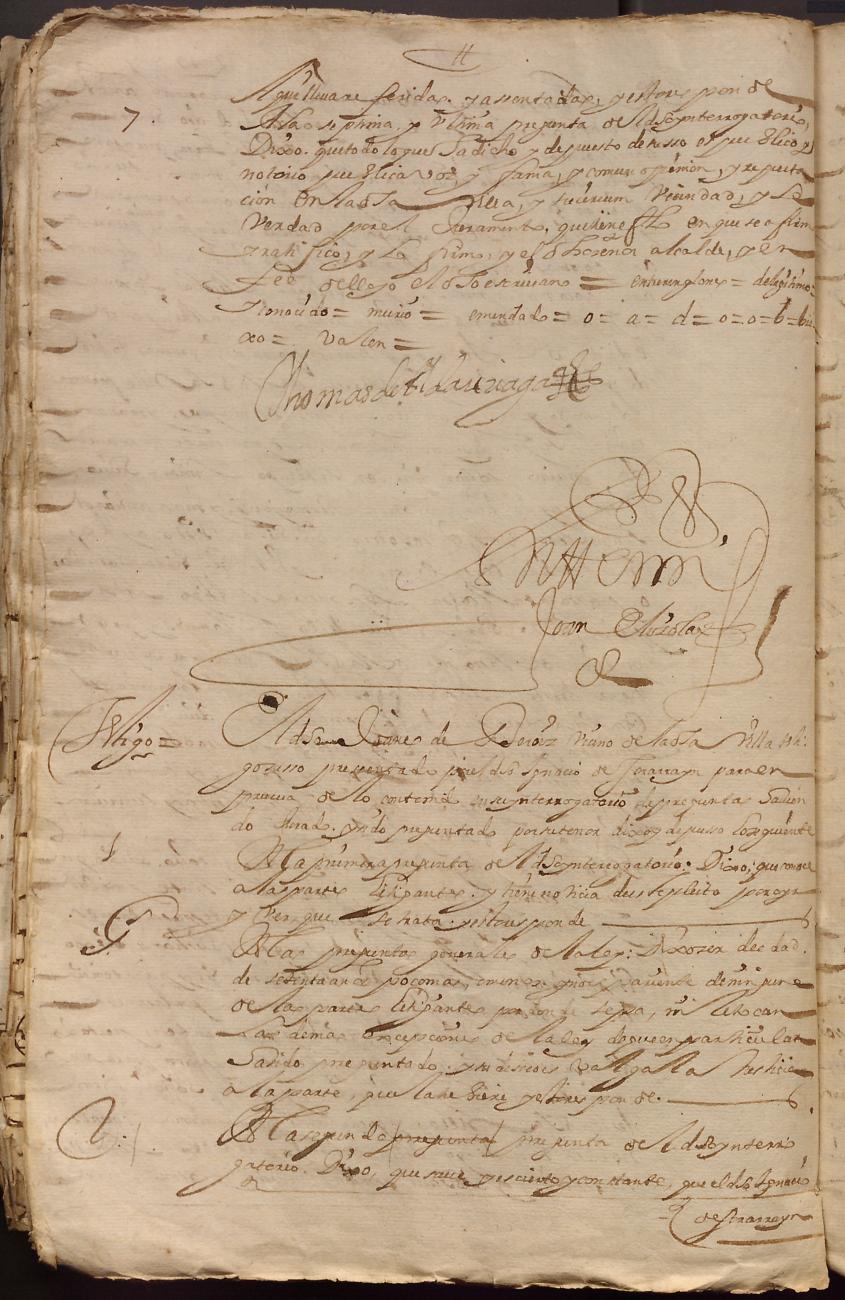 que lleva referidas y assentadas, y esto responde
7. A la septima, y ultima pregunta del dho ynterrogatorio,
Dixo. que todo lo que ha dicho y depuesto de susso es publico y
notorio publica voz, y fama, y comun opinion, y reputa
ción en la dha villa, y su vecindad, y la
Verdad por el Juramento, que tiene fho en que se afirmo
y ratifico, y lo firmo, y el dho señor alcalde, y en
fee de ello yo el dho escrivano = entrerrenglones = de legitimo =
y conocido = murio = emendado = o = a = d = o = o = b = bi
xo = valen =
Thomas de
Ante mi
Joan
Testigo = El dho de vecino de la dha Villa testi
go susso presentado por el dho Ignacio de para en
prueva de lo contenido en su ynterrogatorio de preguntas havien
do Jurado. y siendo preguntado por su tenor dixo y depusso lo siguiente
1 A la primera pregunta del dho ynterrogatorio: Dixo; que conoce
a las partes litigantes. y tiene noticia de este pleito por oyr
y ver que se trata. y esto responde
G A las preguntas generales de la ley: Dixo ser de edad
de setenta años poco mas, o menos y no es pariente de ninguna
de las partes litigantes por donde sepa, ni le tocan
las demas excepciones de la ley de que en particular
ha sido preguntado. y su desseo es valga la Justicia
a la parte, que la tubiere y esto responde.
2: A la segunda pregunta pregunta del dho ynterro
gatorio. Dixo, que save, y es cierto y constante, que el dho Ignacio
de